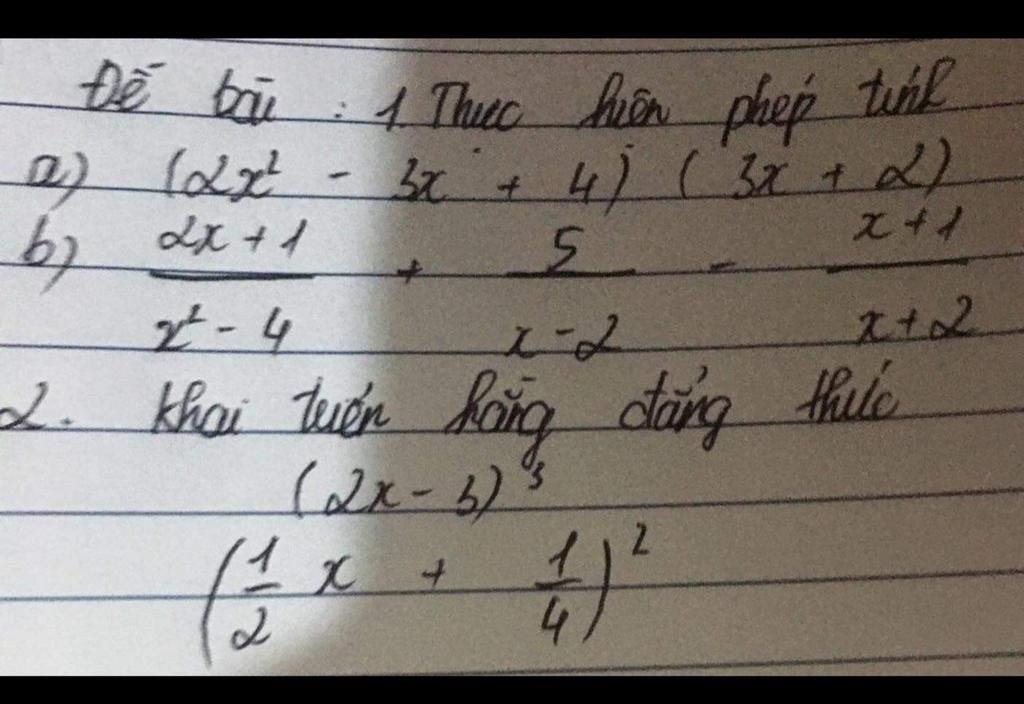 Đề bài : 1. Thực hiện phép tính
a) (2x² - 3x + 4) (3x + 2)
b) (2x + 1)/(x² - 4) + 5/(x - 2) - (x + 1)/(x + 2)
2. Khai triển hằng đẳng thức
(2x - 3)³
(1/2 x + 1/4)²